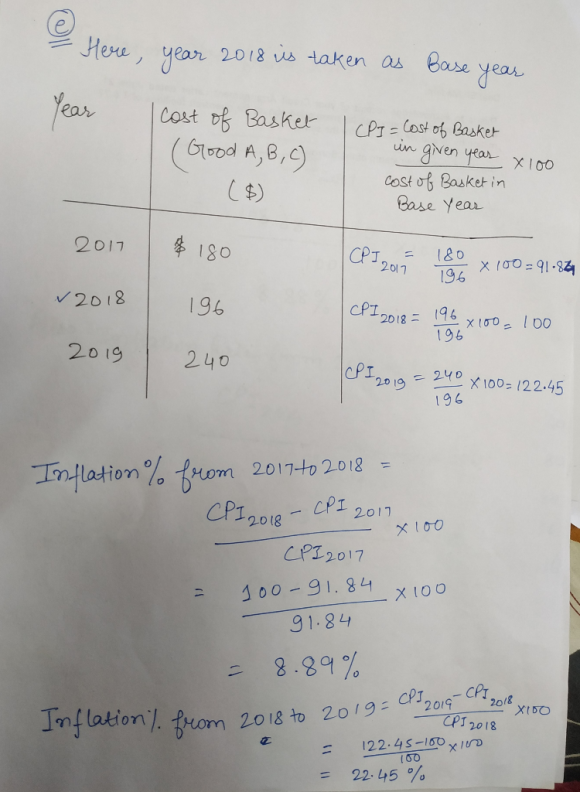 e
Here, year 2018 is taken as Base year
Year
Cost of Basket
(Good A, B, C)
($)
CPI = Cost of Basket
in given year × 100
Cost of Basket in
Base Year
2017 $ 180 CPI2017 = 180/196 × 100 = 91.84
✓2018 196 CPI2018 = 196/196 × 100 = 100
2019 240 CPI2019 = 240/196 × 100 = 122.45
Inflation % from 2017 to 2018 =
CPI2018 - CPI2017 × 100
CPI2017
= 100 - 91.84 × 100
91.84
= 8.89%
Inflation % from 2018 to 2019 = CPI2019 - CPI2018 × 100
CPI2018
= 122.45 - 100 × 100
100
= 22.45 %